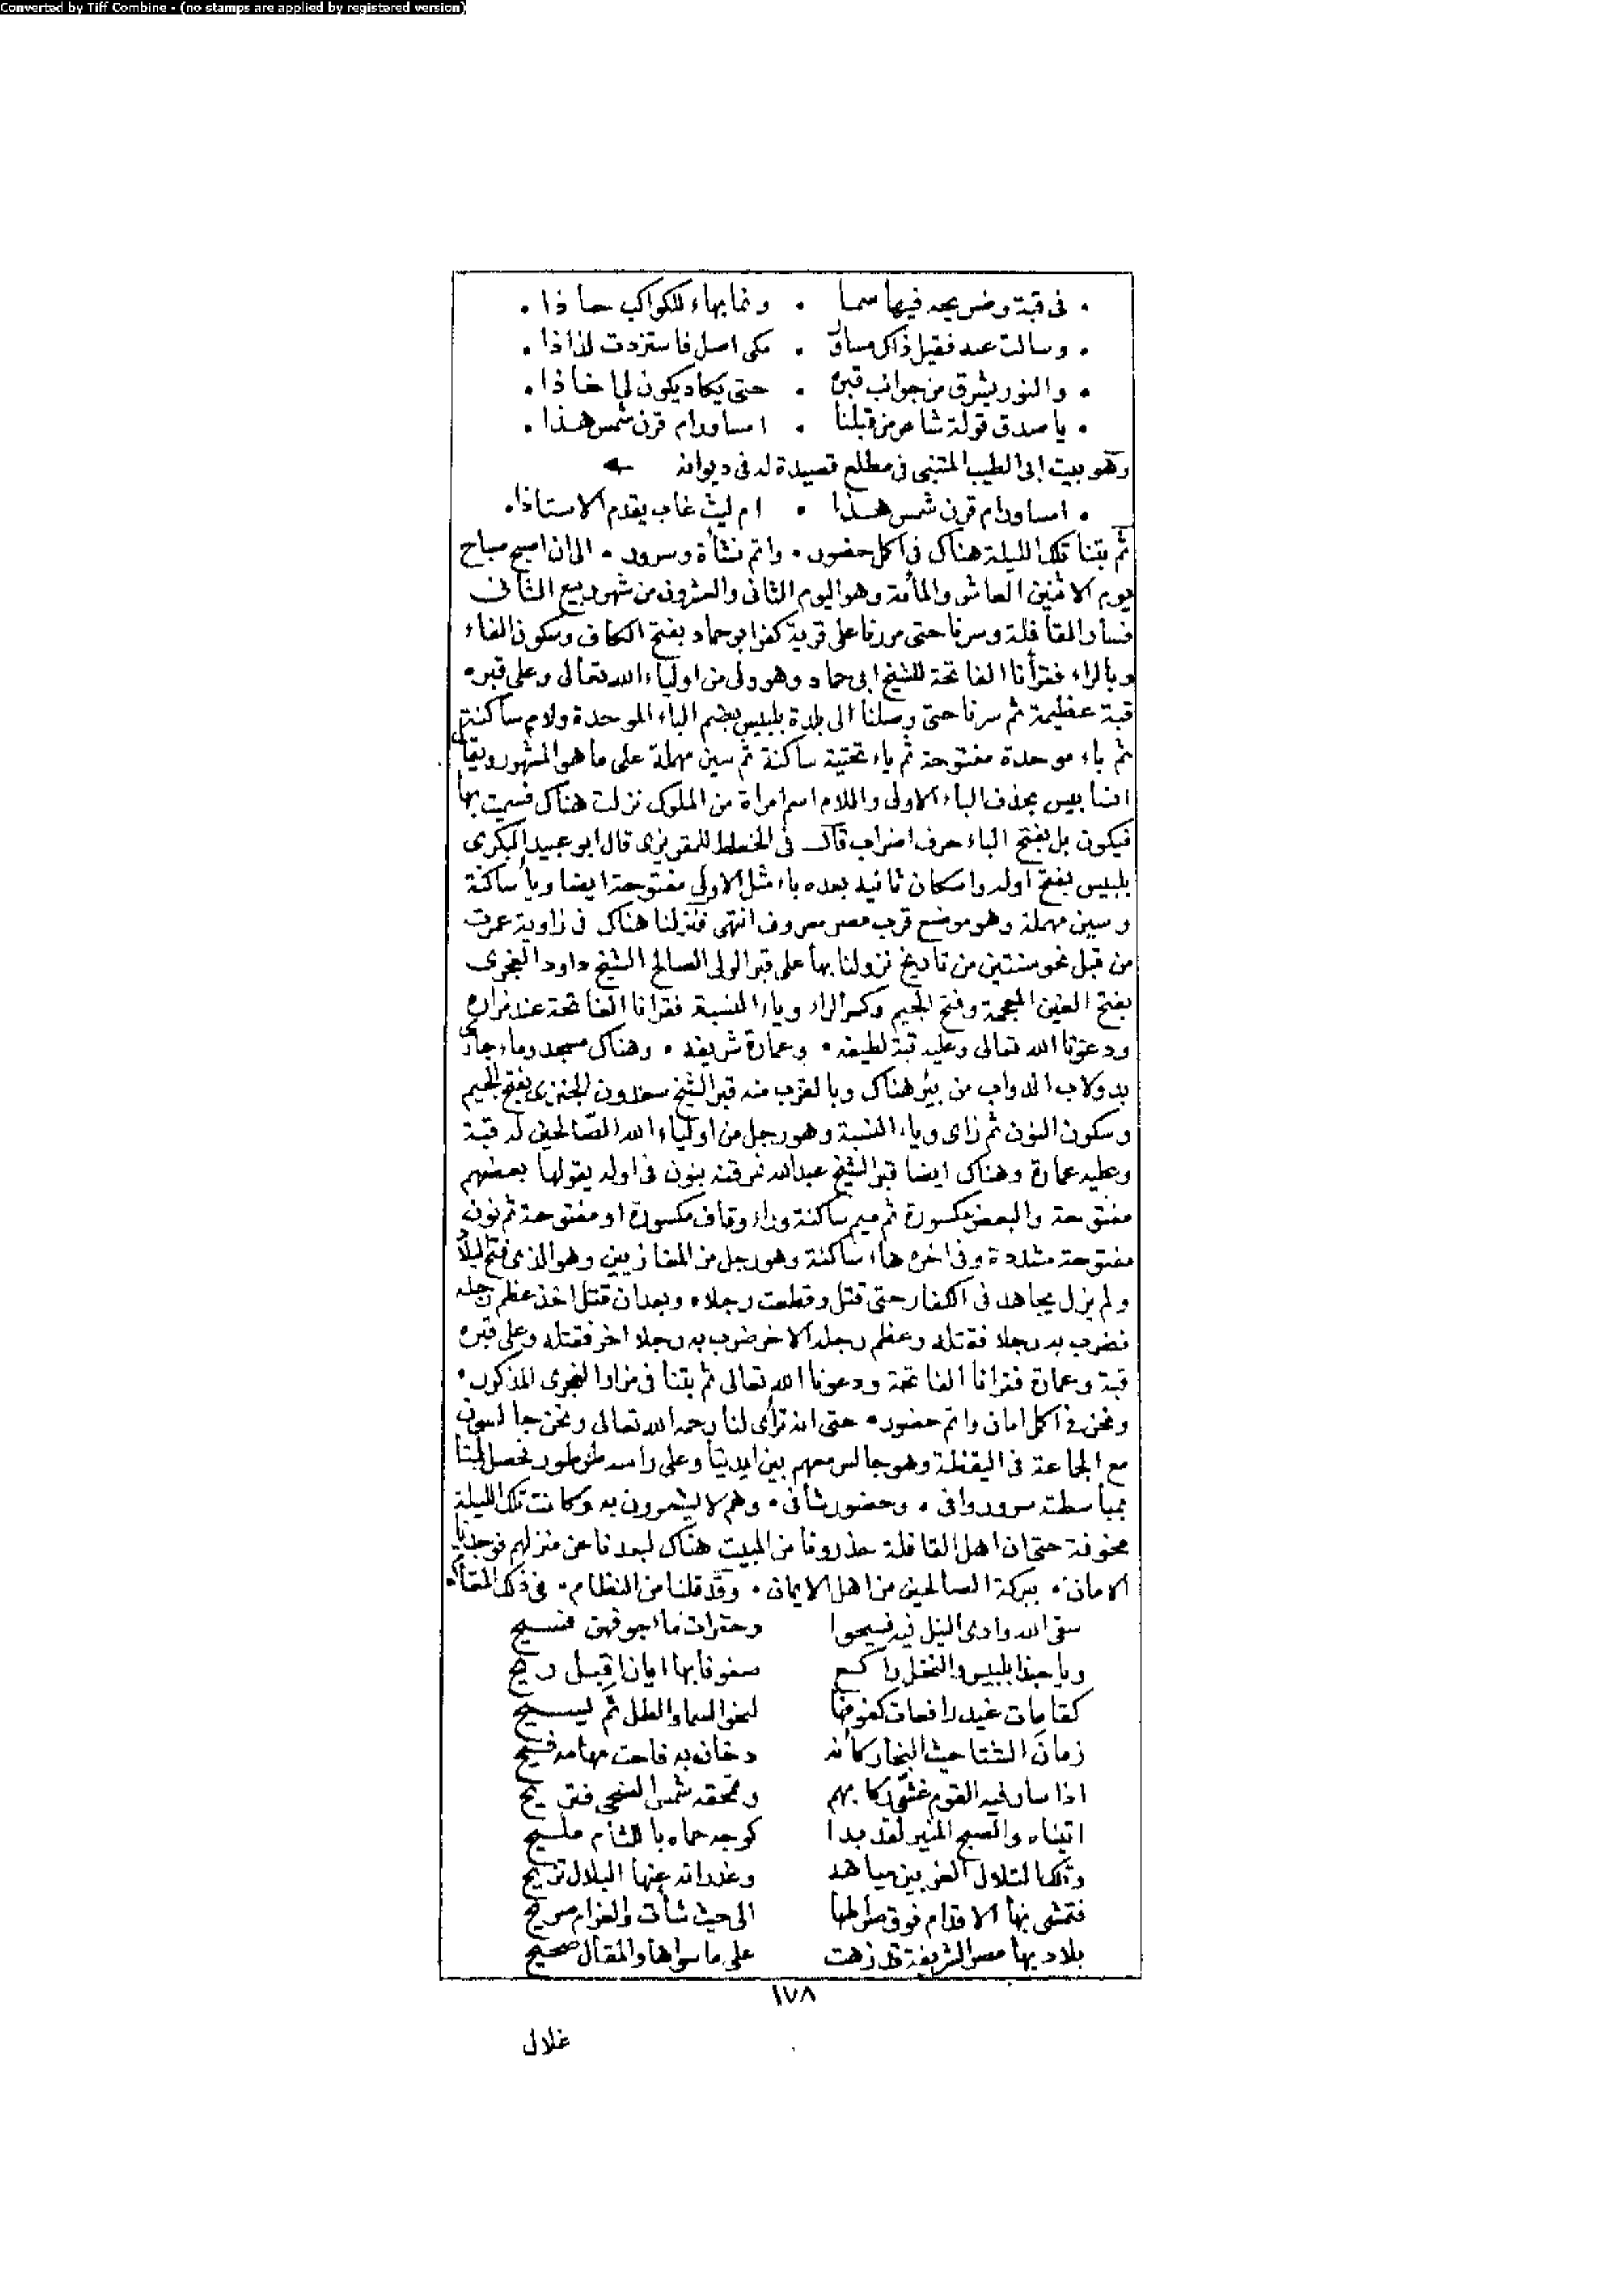 Converted by Tiff Combine - (no stamps are applied by registered version)
• فى قبة وضريحه فيها سما • ونما بهاء للكواكب حاذا •
• وسالت عنه فقيل ذاك مساور • مكى اصل فاستزدت لذاذا •
• والنور يشرق من جوانب قبره • حتى يكاد يكون لى اخاذا •
• يا صدق قولة شاعر من قبلنا • امساور ام قرن شمس هذا •
وهو بيت ابى الطيب المتنبى فى مطلع قصيدة له فى ديوانه
• امساور ام قرن شمس هذا • ام ليث غاب يقدم الاستاذا •
ثم بتنا تلك الليلة هناك فى اكمل حضور • واتم نشأة وسرور • الى ان اصبح صباح
يوم الاثنين العاشر والمأة وهو اليوم الثانى والعشرون من شهر ربيع الثانى
فسار القافلة وسرنا حتى مررنا على قرية كفر ابو حماد بفتح الكاف وسكون الفاء
وبالراء فقرأنا الفاتحة للشيخ ابى حماد وهو ولى من اولياء الله تعالى وعلى قبره
قبة عظيمة ثم سرنا حتى وصلنا الى بلدة بلبيس بضم الباء الموحدة ولام ساكنة
ثم باء موحدة مفتوحة ثم ياء تحتية ساكنة ثم سين مهملة على ما هو المشهور ويقال
ايضا بيس بحذف الباء الاولى واللام اسم امراة من الملوك نزلت هناك فسميت بها
فيكون بل بفتح الباء حرف اضراب قال فى الخطط للمقريزى قال ابو عبيد البكرى
بلبيس بفتح اوله واسكان ثانيه بعده باء مثل الاولى مفتوحة ايضا وياء ساكنة
وسين مهملة وهو موضع قرب مصر معروف انتهى فنزلنا هناك فى زاوية عمرت
من قبل نحو سنتين من تاريخ نزولنا بها على قبر الولى الصالح الشيخ داود الغجرى
بفتح الغين المعجمة وفتح الجيم وكسر الراء وياء النسبة فقرانا الفاتحة عند مزاره
ودعونا الله تعالى وعليه قبة لطيفه • وعمارة شريفه • وهناك مسجد وماء جارى
بدولاب الدواب من بئر هناك وبالقرب منه قبر الشيخ سعدون الجنزى بفتح الجيم
وسكون النون ثم زاى وياء النسبة وهو رجل من اولياء الله الصالحين له قبة
وعليه عمارة وهناك ايضا قبر الشيخ عبد الله نمرقنه بنون فى اوله يقولها بعضهم
مفتوحة والبعض مكسورة ثم ميم ساكنة وراء وقاف مكسورة او مفتوحة ثم نون
مفتوحة مشددة وفى اخره هاء ساكنة وهو رجل من المغازيين وهو الذى فتح
ولم يزل يجاهد فى الكفار حتى قتل وقطعت رجلاه وبعد ان قتل اخذ عظم رجله
فضرب به رجلا فقتله وعظم رجله الاخر ضرب به رجلا اخر فقتله وعلى قبره
قبة وعمارة فقرانا الفاتحة ودعونا الله تعالى ثم بتنا فى مزار الغجرى المذكور •
ونحن فى اكمل امان واتم حضور • حتى انه ترأى لنا رحمه الله تعالى ونحن جالسون
مع الجماعة فى اليقظة وهو جالس معهم بين ايدينا وعلى راسه طرطور فحصل لنا
بمباسطته سرور وافى • وحضور شافى • وهم لا يشعرون به وكانت تلك الليلة
مخوفة حتى ان اهل القافلة حذرونا من المبيت هناك لبعدنا عن منزلهم فوجدنا
الامان • ببركة الصالحين من اهل الايمان • وقد قلنا من النظام • فى ذلك المقام
سقى الله وادى النيل فيه فسيحوا وحقرات ماء جوفهن فسيح
ويا حبذا بلبيس والنخل راكع صفوفا بها ايان اقبل ريح
كقامات غيد رافعات كفوفها لنحو السما والطل ثم يسيح
زمان الشتا حيث البخار كانه دخان به فاحت مهامه فيح
اذا سار فيه القوم غشى ركابهم وتمحقه شمس الضحى فتريح
اتيناه والصبح المنير لقد بدا كوجه حماه بالشام مليح
وتلك التلال العفر بين مياهه وغدرانه عنها البلال تزيح
فتمشى بنا الاقدام فوق صراطها الى حيث شأت والغرام صريح
بلاد بها مصر الشريفة قد زهت على ما سواها والمقال صحيح
١٧٨
غلال